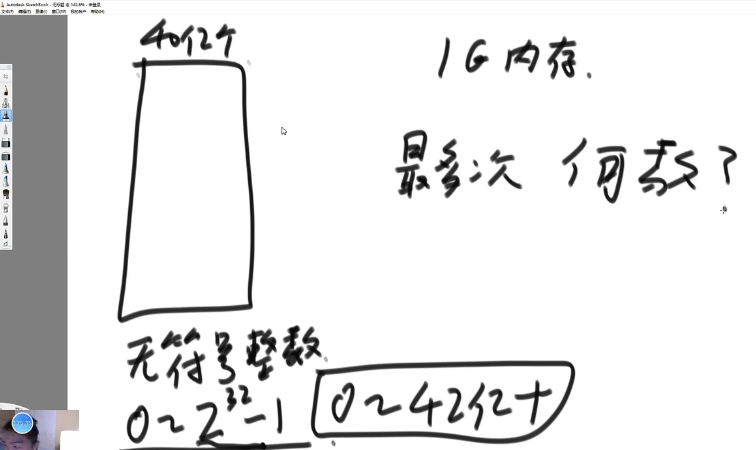 Autodesk SketchBook
文件(F) 编辑(E) 图像(I) 窗口(W) 我的帐户 帮助(H)
40亿个
1G内存.
最多次 何数?
无符号整数
0~2^32-1
0~42亿+